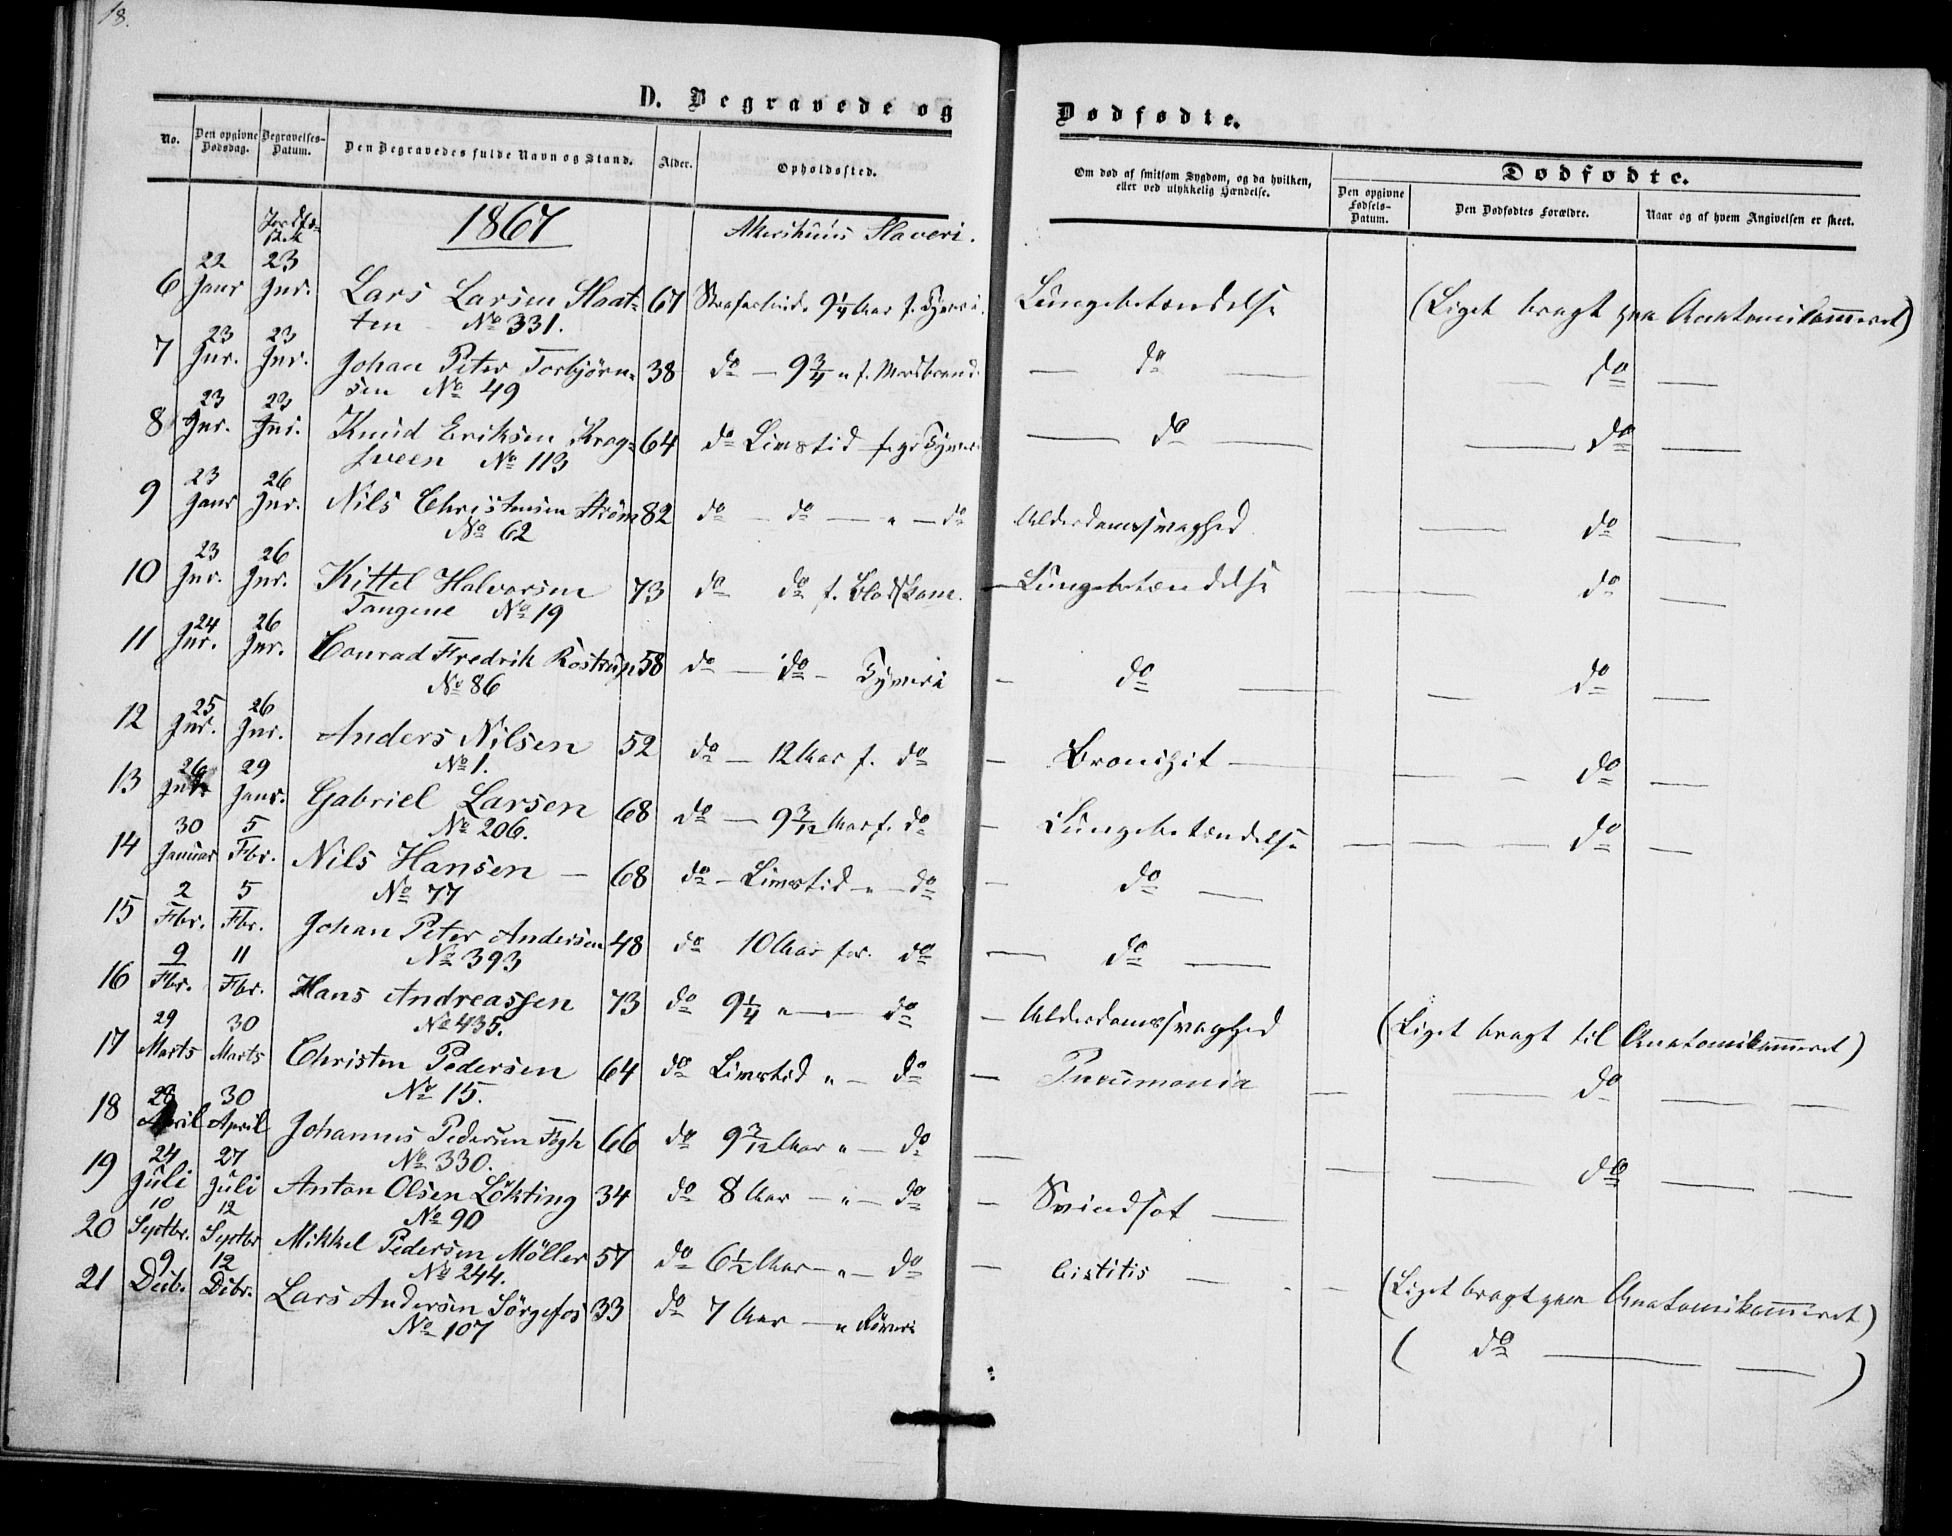 18.
D. Begravede og Dødfødte.
No. Den opgivne Dødsdag. Begravelses-Datum. Den Begravedes fulde Navn og Stand. Alder. Opholdssted. Om død af smitsom Sygdom, og da hvilken, eller ved ulykkelig Hændelse. Dødfødte.
Den opgivne Fødsels-Datum. Den Dødfødtes Forældre. Naar og af hvem Angivelsen er skeet.
1867 Akershuus Slaveri.
6 22 Janr 23 Jnr. Lars Larsen Slaat-
ten No 331. 67 9 1/4 Aar f. Tyveri. Lungebetændelse (Liget bragt paa Anatomikammeret)
7 23 Jnr. 23 Jnr. Johan Peter Torbjørn-
sen No 49 38 do — 9 3/4 " f. Mordbrand. — do — — do —
8 23 Jnr. 23 Jnr. Knud Eriksen Krog-
sveen No 113 64 do Livstid f. gr Tyveri — do — — do —
9 23 Janr 26 Jnr. Nils Christensen Strøm 82 do — do — " — do Alderdomssvaghed — do —
No 62
10 23 Jnr. 26 Jnr. Kittel Halvorsen 73 do do f. Blodskam. — Lungebetændelse — — do —
Tangene No 19
11 24 Jnr. 26 Jnr. Conrad Fredrik Rostrup 58 do — do — Tyveri — do — — do —
No 86
12 25 Jnr. 26 Jnr. Anders Nilsen 52 do — 12 Aar f. do — Bronchit — — — do —
No 1.
13 26 Jnr. 29 Janr. Gabriel Larsen 68 do — 9 3/12 Aar f. do — Lungebetændelse — — — do —
No 206.
14 30 Januar 5 Fbr. Nils Hansen — 68 do — Livstid " — do — do —
No 77
15 2 Fbr. 5 Fbr. Johan Peter Andersen 48 do 10 Aar for. do — do —
No 393
16 9 Fbr. 11 Fbr. Hans Andreassen 73 do 9 1/4 " — — do — Alderdomssvaghed (Liget bragt til Anatomikammeret)
No 435.
17 29 Marts 30 Marts Christen Pedersen 64 do Livstid " — do — Pneumonia — — do — —
No 15.
18 28 April 30 April Johannes Pedersen 66 do 9 3/12 Aar " do — — — do — —
No 330.
19 24 Juli 27 Juli Anton Olsen Løkting 34 do 8 Aar — " — do — Svindsot —
No 90
20 10 Septbr. 12 Septbr Mikkel Pedersen Møller 57 do 6 1/2 Aar — " — do — Cistitis — - — (Liget bragt paa Anatomikammeret)
No 244.
21 9 Decb. 12 Dcbr. Lars Andersen Sørgefos 33 do 7 Aar — " Røveri ( do — — )
No 107